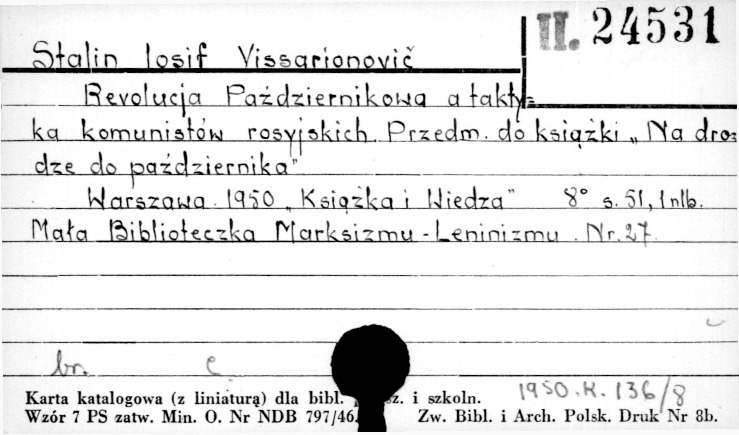 II. 24531
Stalin Iosif Vissarionovič
Rewolucja Październikowa a takty=
ka komunistów rosyjskich. Przedm. do książki „Na dro=
dze do października"
Warszawa 1950 „Książka i Wiedza" 8° s. 51, 1 nlb.
Mała Biblioteczka Marksizmu-Leninizmu. Nr. 27.
br. c.
1950.K.136/8
Karta katalogowa (z liniaturą) dla bibl. i szkoln.
Wzór 7 PS zatw. Min. O. Nr NDB 797/46. Zw. Bibl. i Arch. Polsk. Druk Nr 8b.